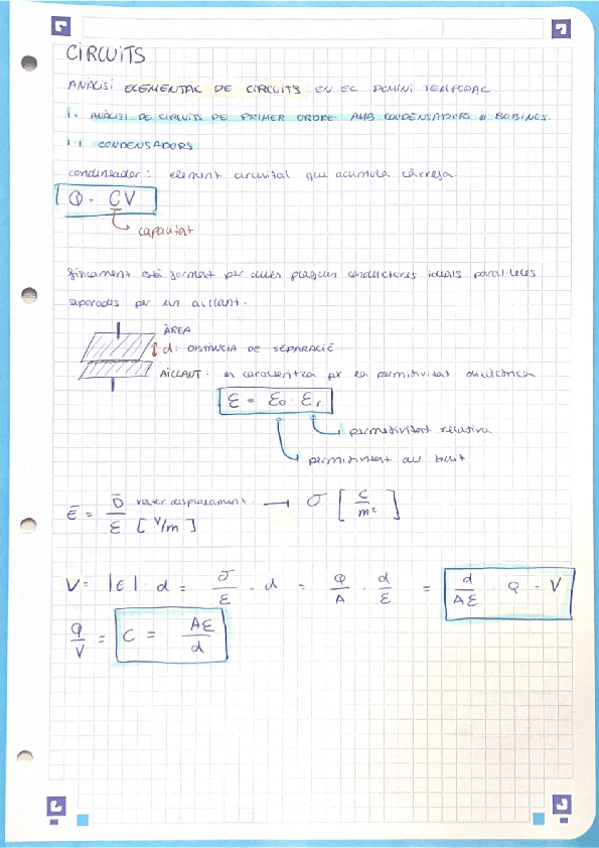 CIRCUITS
ANÀLISI ELEMENTAL DE CIRCUITS EN EL DOMINI TEMPORAL
1. ANÀLISI DE CIRCUITS DE PRIMER ORDRE AMB CONDENSADORS O BOBINES
1.1 CONDENSADORS
condensador: element circuital que acumula càrrega.
Q = CV
capacitat
físicament està format per dues plaques conductores ideals paral·leles
separades per un aïllant.
ÀREA
d: DISTÀNCIA DE SEPARACIÓ
AÏLLANT: es caracteritza per la permitivitat dielèctrica
ε = ε₀ · εᵣ
permitivitat relativa
permitivitat del buit
Ē = D̄/ε vector desplaçament [V/m] → σ [C/m²]
V = |E| · d = σ/ε · d = Q/A · d/ε = d/Aε · Q = V
Q/V = C = Aε/d